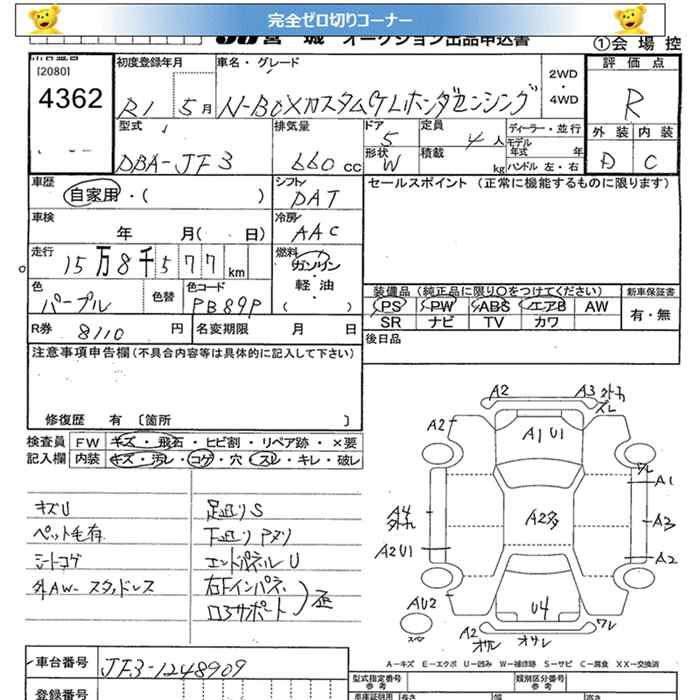 完全ゼロ切りコーナー
宮城 オークション出品申込書
①会場控
[2080]
4362
初度登録年月
R1 5月
車名・グレード
N-BOXカスタムGLホンダセンシング
2WD
・
4WD
評価点
R
型式
DBA-JF3
排気量
660 cc
ドア 5
定員 4人
形状 W
積載 kg
ディーラー・並行
モデル年式 年
ハンドル 左・右
外装 内装
D C
車歴
自家用・( )
シフト
DAT
セールスポイント (正常に機能するものに限ります)
車検
年 月( 日)
冷房
AAC
走行
15万8千577km
燃料
ガソリン
・
軽油
( )
色
パープル
色替
色コード
PB89P
装備品(純正品に限り○をつけてください)
新車保証書
PS PW ABS エアB AW
有・無
SR ナビ TV カワ
R券 8110円
名変期限 月 日
後日品
注意事項申告欄(不具合内容等は具体的に記入して下さい)
修復歴 有 〔箇所 〕
検査員 FW キズ・飛石・ヒビ割・リペア跡・×要
記入欄 内装 キズ・汚レ・コゲ・穴・スレ・キレ・破レ
キズU
ペット毛有
シートコゲ
外AW-スタッドレス
足廻りS
下廻りアメリ
エンドパネルU
右Fインパネ
ロアサポート
歪
A2
A3
ズレ
A2
A1 U1
ワレ
A1
A4
A2多
A3
A2U1
A2
AU2
U4
スペ
A2
オサレ
オサレ
ワレ
A-キズ E-エクボ U-凹み W-補修跡 S-サビ C-腐食 XX-交換済
車台番号
JF3-1248909
型式指定番号
参考
類別区分番号
参考
登録番号
車庫証明用
長さ
幅
高さ